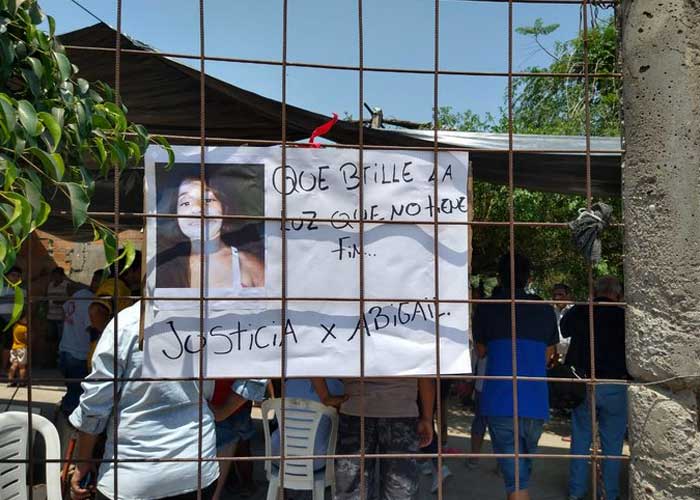 QUE BRILLE LA
LUZ QUE NO TIENE
FIN...
JUSTICIA X ABIGAIL.